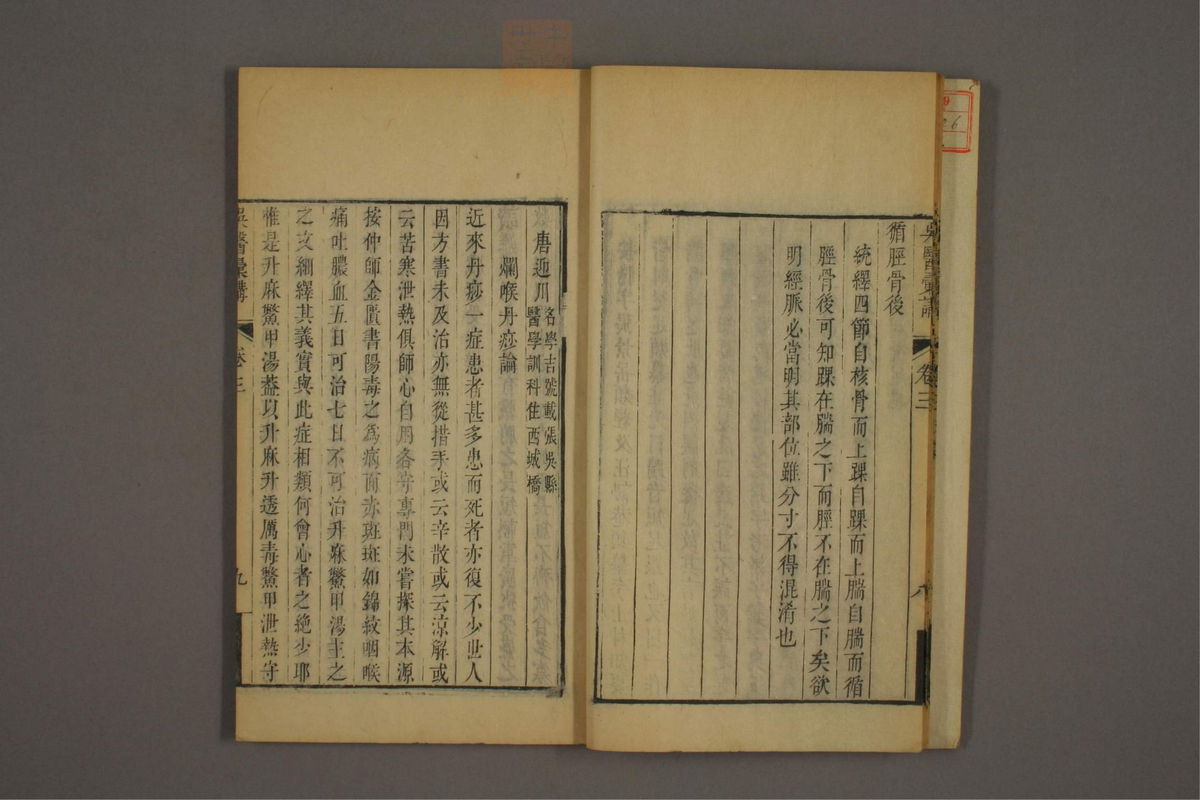 吳醫彙講
卷三
循脛骨後
統繹四節自核骨而上踝自踝而上腨自腨而循
脛骨後可知踝在腨之下而脛不在腨之下矣欲
明經脈必當明其部位雖分寸不得混淆也
唐迎川
名學吉號載張吳縣
醫學訓科住西城橋
爛喉丹痧論
近來丹痧一症患者甚多患而死者亦復不少世人
因方書未及治亦無從措手或云辛散或云涼解或
云苦寒泄熱俱師心自用各守專門未嘗探其本源
按仲師金匱書陽毒之為病面赤斑斑如錦紋咽喉
痛吐膿血五日可治七日不可治升麻鱉甲湯主之
之文細繹其義實與此症相類何會心者之絶少耶
惟是升麻鱉甲湯葢以升麻升透厲毒鱉甲泄熱守
吳醫彙講
卷三
九